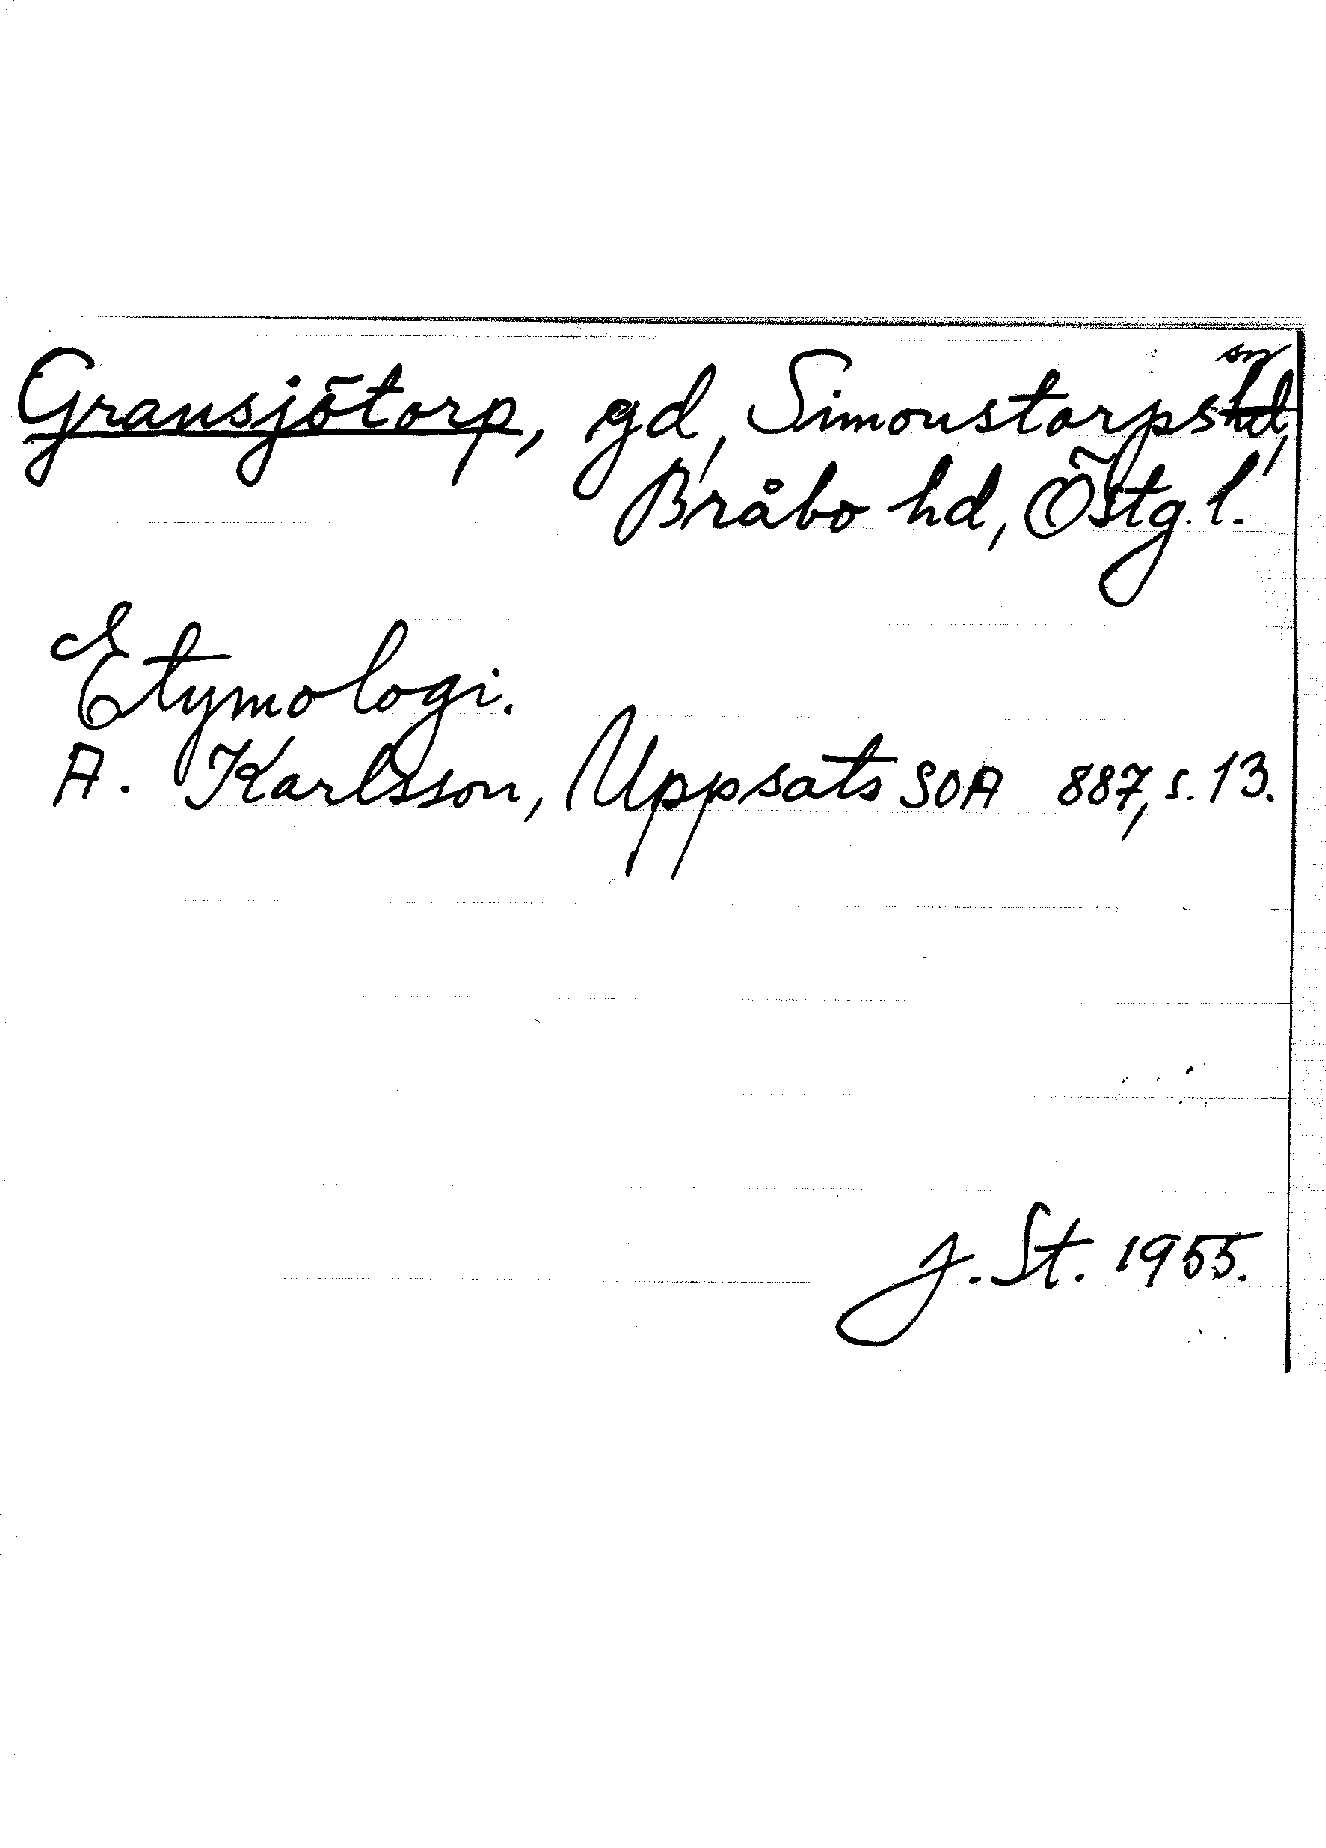 Gransjötorp, gd, Simonstorps sn,
Bråbo hd, Östg. l.
Etymologi.
A. Karlsson, Uppsats SOA 887, s. 13.
J. St. 1955.